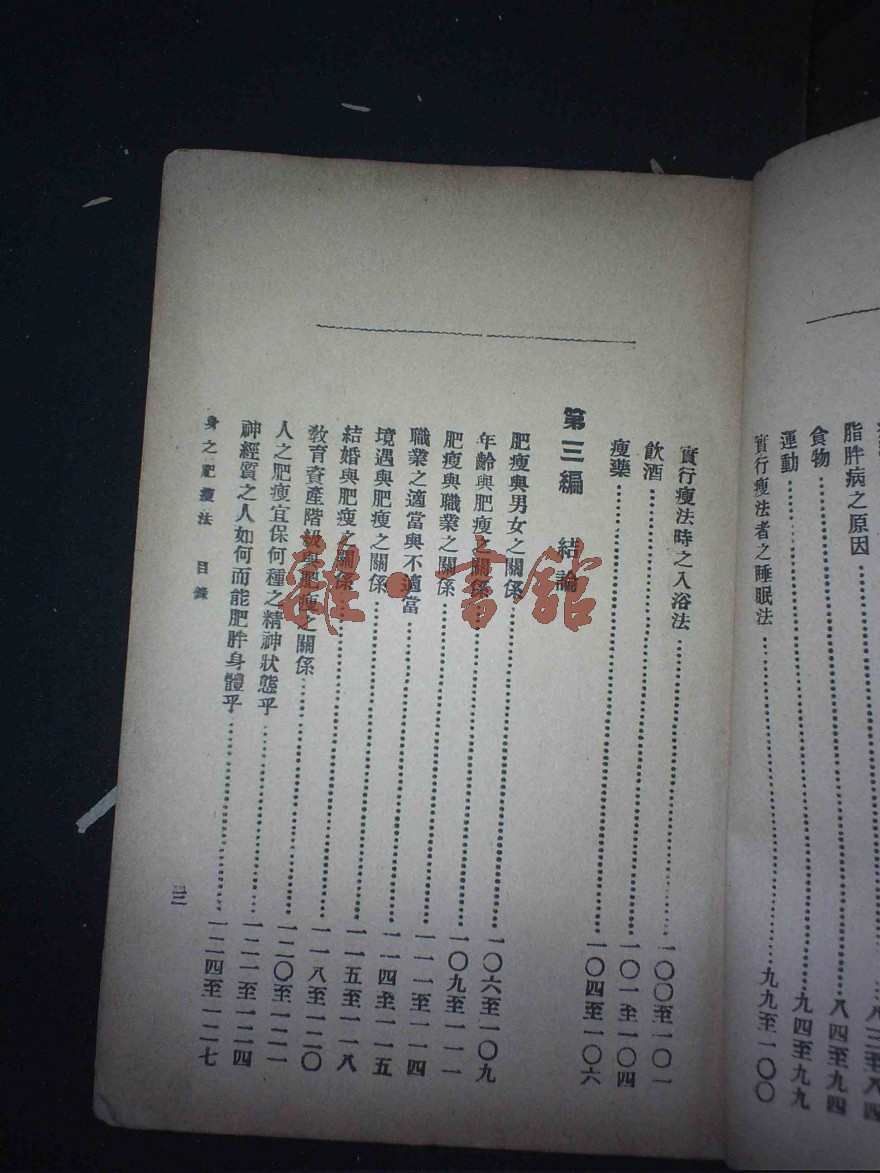 脂胖病之原因……八三至八四
食物……八四至九四
運動……九四至九九
實行瘦法者之睡眠法……九九至一〇〇
實行瘦法時之入浴法……一〇〇至一〇一
飲酒……一〇一至一〇四
瘦藥……一〇四至一〇六
第三編 結論
肥瘦與男女之關係……一〇六至一〇九
年齡與肥瘦之關係……一〇九至一一一
肥瘦與職業之關係……一一一至一一四
職業之適當與不適當……一一四至一一五
境遇與肥瘦之關係……一一五至一一八
結婚與肥瘦之關係……一一八至一二〇
教育資產階級與肥瘦之關係……一二〇至一二一
人之肥瘦宜保何種之精神狀態乎……一二一至一二四
神經質之人如何而能肥胖身體乎……一二四至一二七
身之肥瘦法 目錄
三
雜·書館